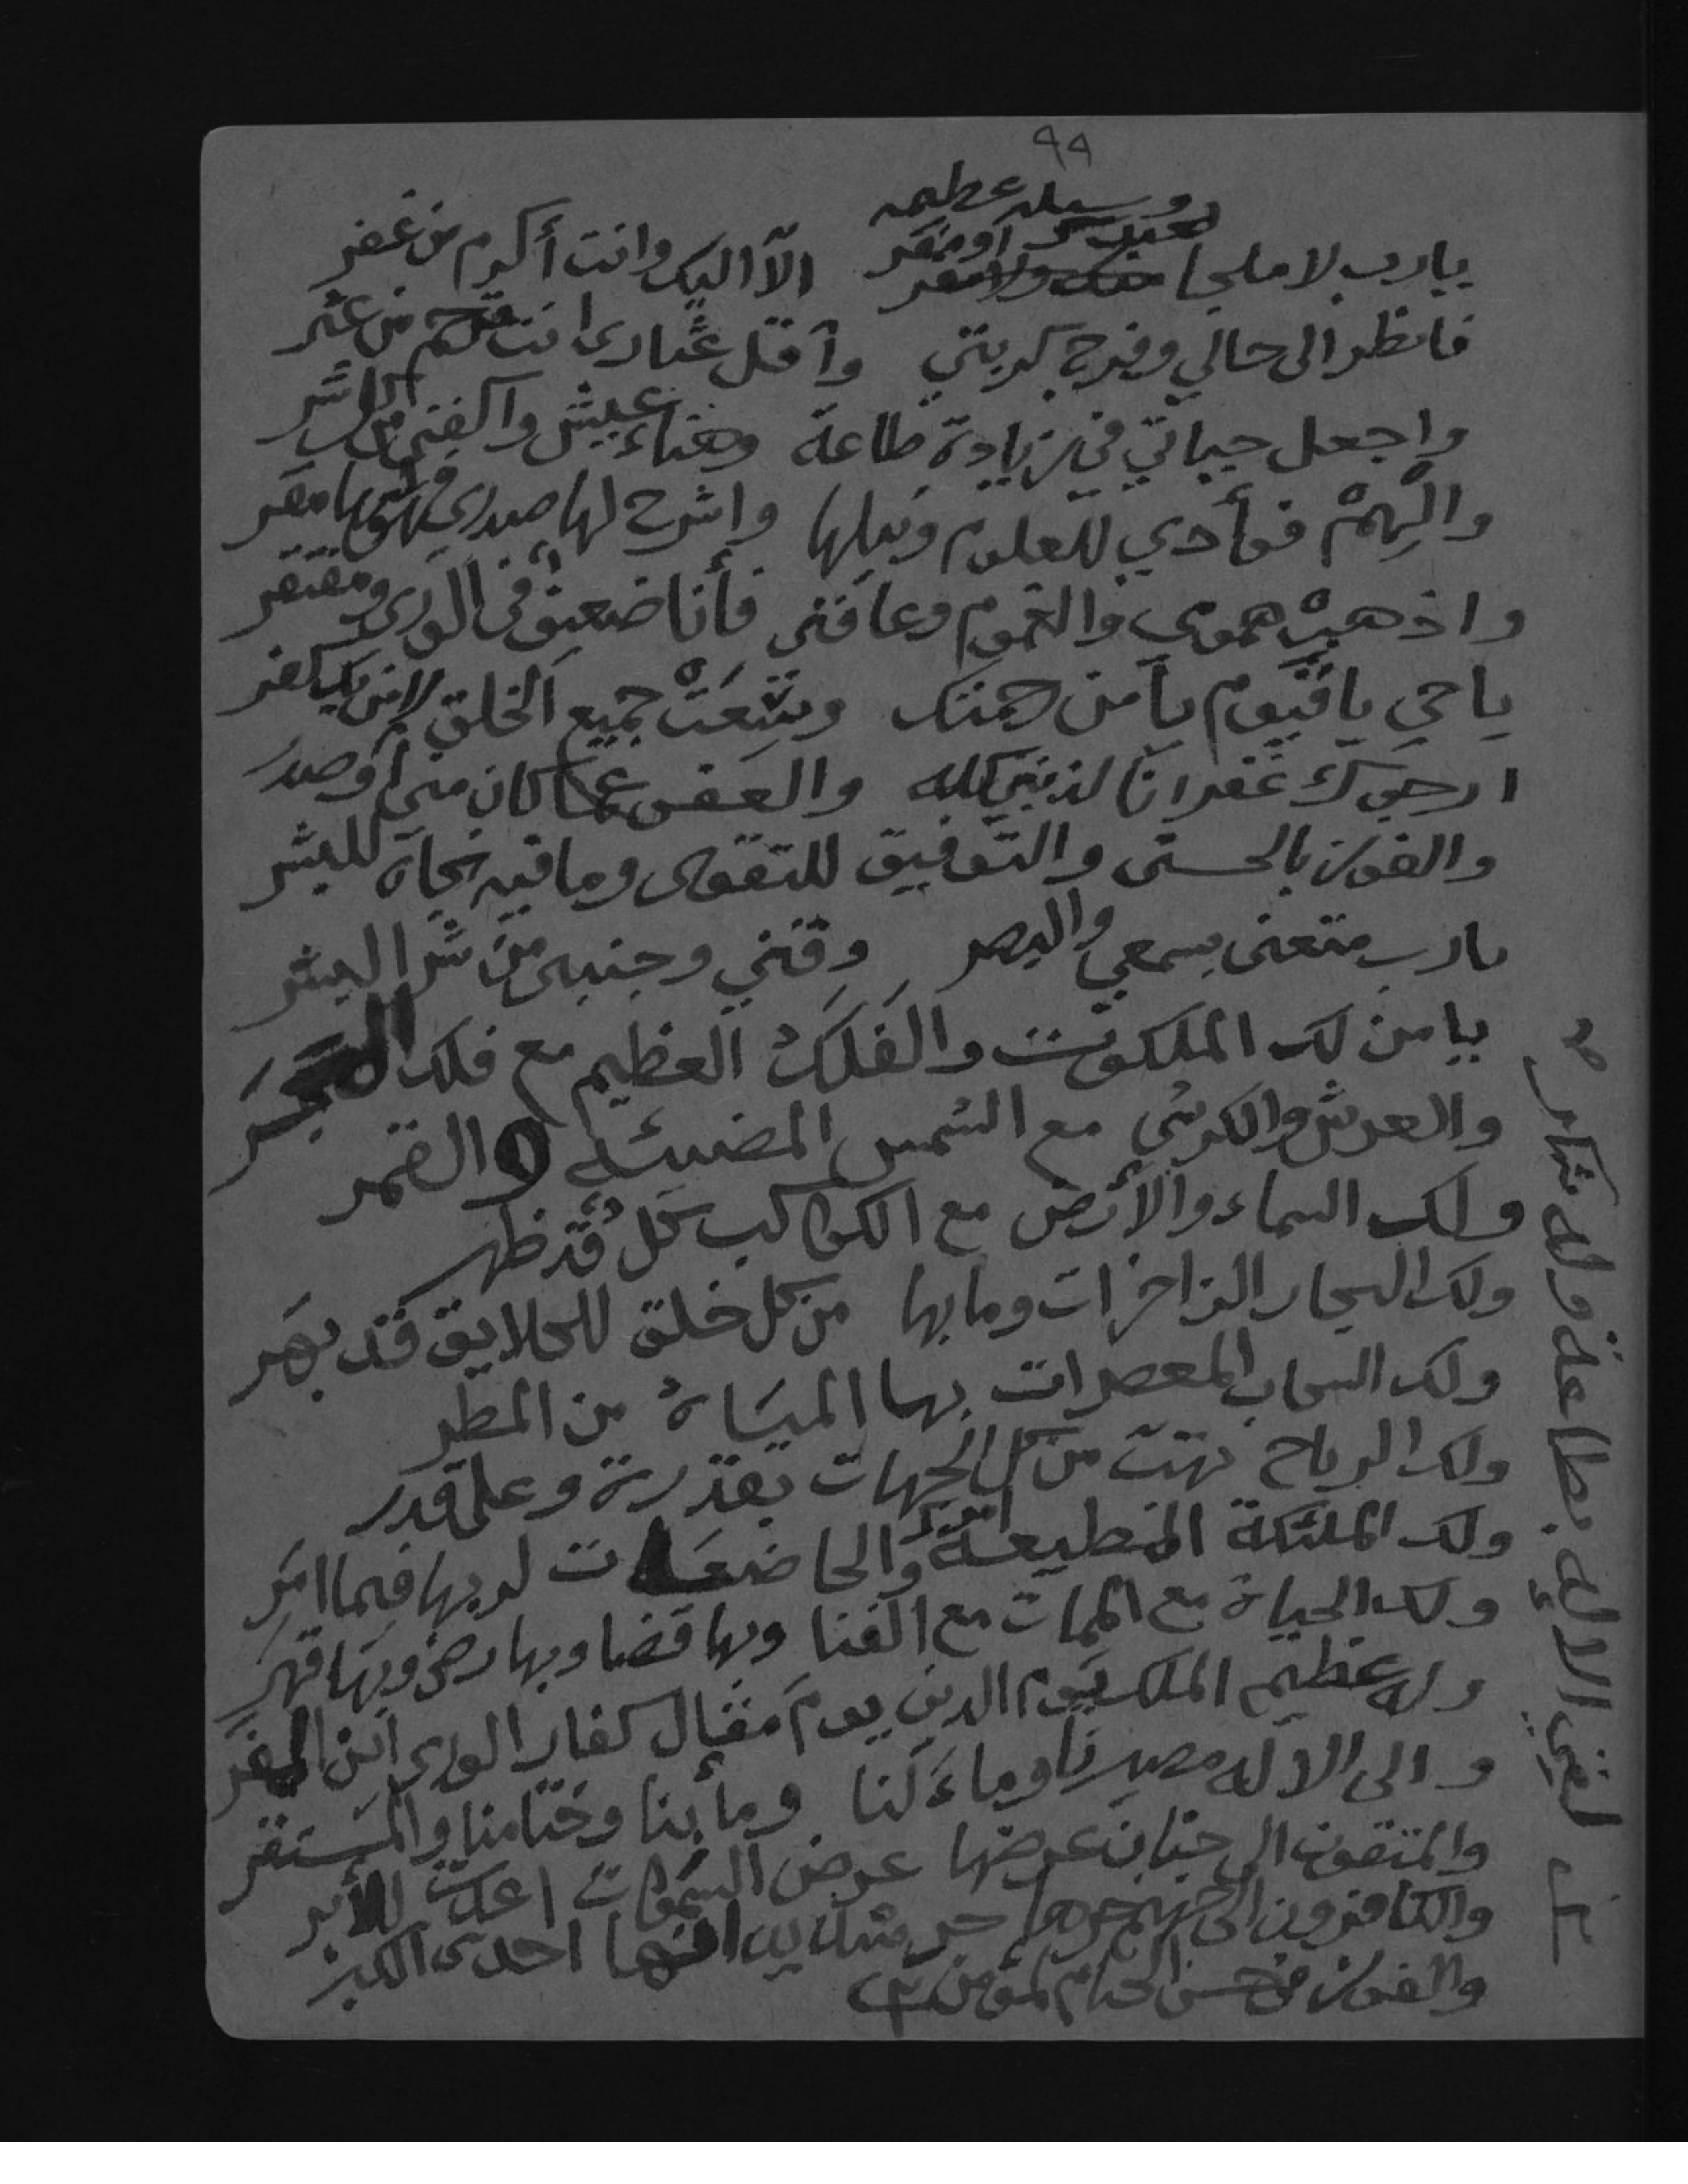 ٩٩
وسيله عظيمه
يا رب لا ملجا لعبدك او مفر الآ اليك وانت أكرم من غفر
فانظر الى حالي وفرج كربتي وآقل عثارى انت ترحم من عثر
واجعل حياتي في زيادة طاعة وهناء عيش واكفني كل شر
والْهِمْ فوأدي للعلوم ونيلها واشرح لها صدرى
واذهبْ همومي والغموم وعافني فأنا ضعيف في الورى ومفتقر
يا حي يا قيوم يا من رحمتك وسِعَتْ جميع الخلق
ارجوك غفرانا لذنبي كله والعفو عما كان مني أو صدر
والفوز بالحسنى والتوفيق للتقوى وما فيه نجاة للبشر
يا رب متعنى بسمعي والبصر وقني وجنبنى من شر البشر
يا من لك الملكوت والفَلَكُ العظيم مع فلك
والعرش والكرسي مع الشمس المضيئة والقمر
ولك السماء والأرض مع الكواكب كل قد ظهر
ولك البحار الزاخرات وما بها من كل خلق للخلايق قد بهر
ولك السحاب المعصرات بها المياهُ من المطر
ولك الرياح تهبّ من كل الجهات بقدرة وعلى قدر
ولك الملئكة المطيعة والخاضعات لربها فيما امر
ولك الحياة مع الممات مع الفنا وبها قضا وبها رضى وبها قهر
وله عظيم الملك يوم الدين يوم مقال كفار الورى اين المفر
والى الاله مصيرنا وماءَلنا ومأبنا وختامنا والمستقر
والمتقون الى جنان عرضها عرض السموات اعدت للأبر
والكافرون الى جهنم حرها حر شديد انها احدى الكبر
والفوز في حسن الختام لمؤمن
بطاعة وله شكر